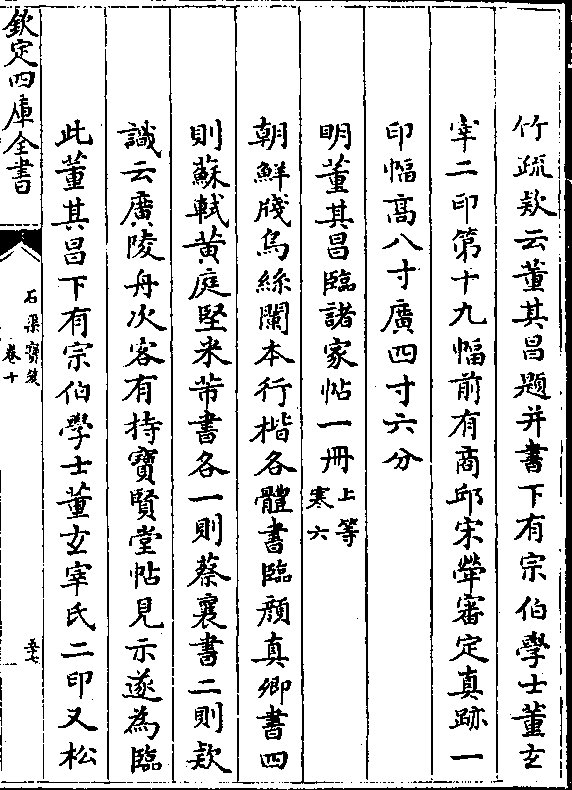 竹疏款云董其昌題并書下有宗伯學士董玄
宰二印第十九幅前有商邱宋犖審定真跡一
印幅高八寸廣四寸六分
明董其昌臨諸家帖一冊上等
寒六
朝鮮牋烏絲闌本行楷各體書臨顔真卿書四
則蘇軾黄庭堅米芾書各一則蔡襄書二則款
識云廣陵舟次客有持寶賢堂帖見示遂為臨
此董其昌下有宗伯學士董玄宰氏二印又松
欽定四庫全書
石渠寶笈
卷十
五十七